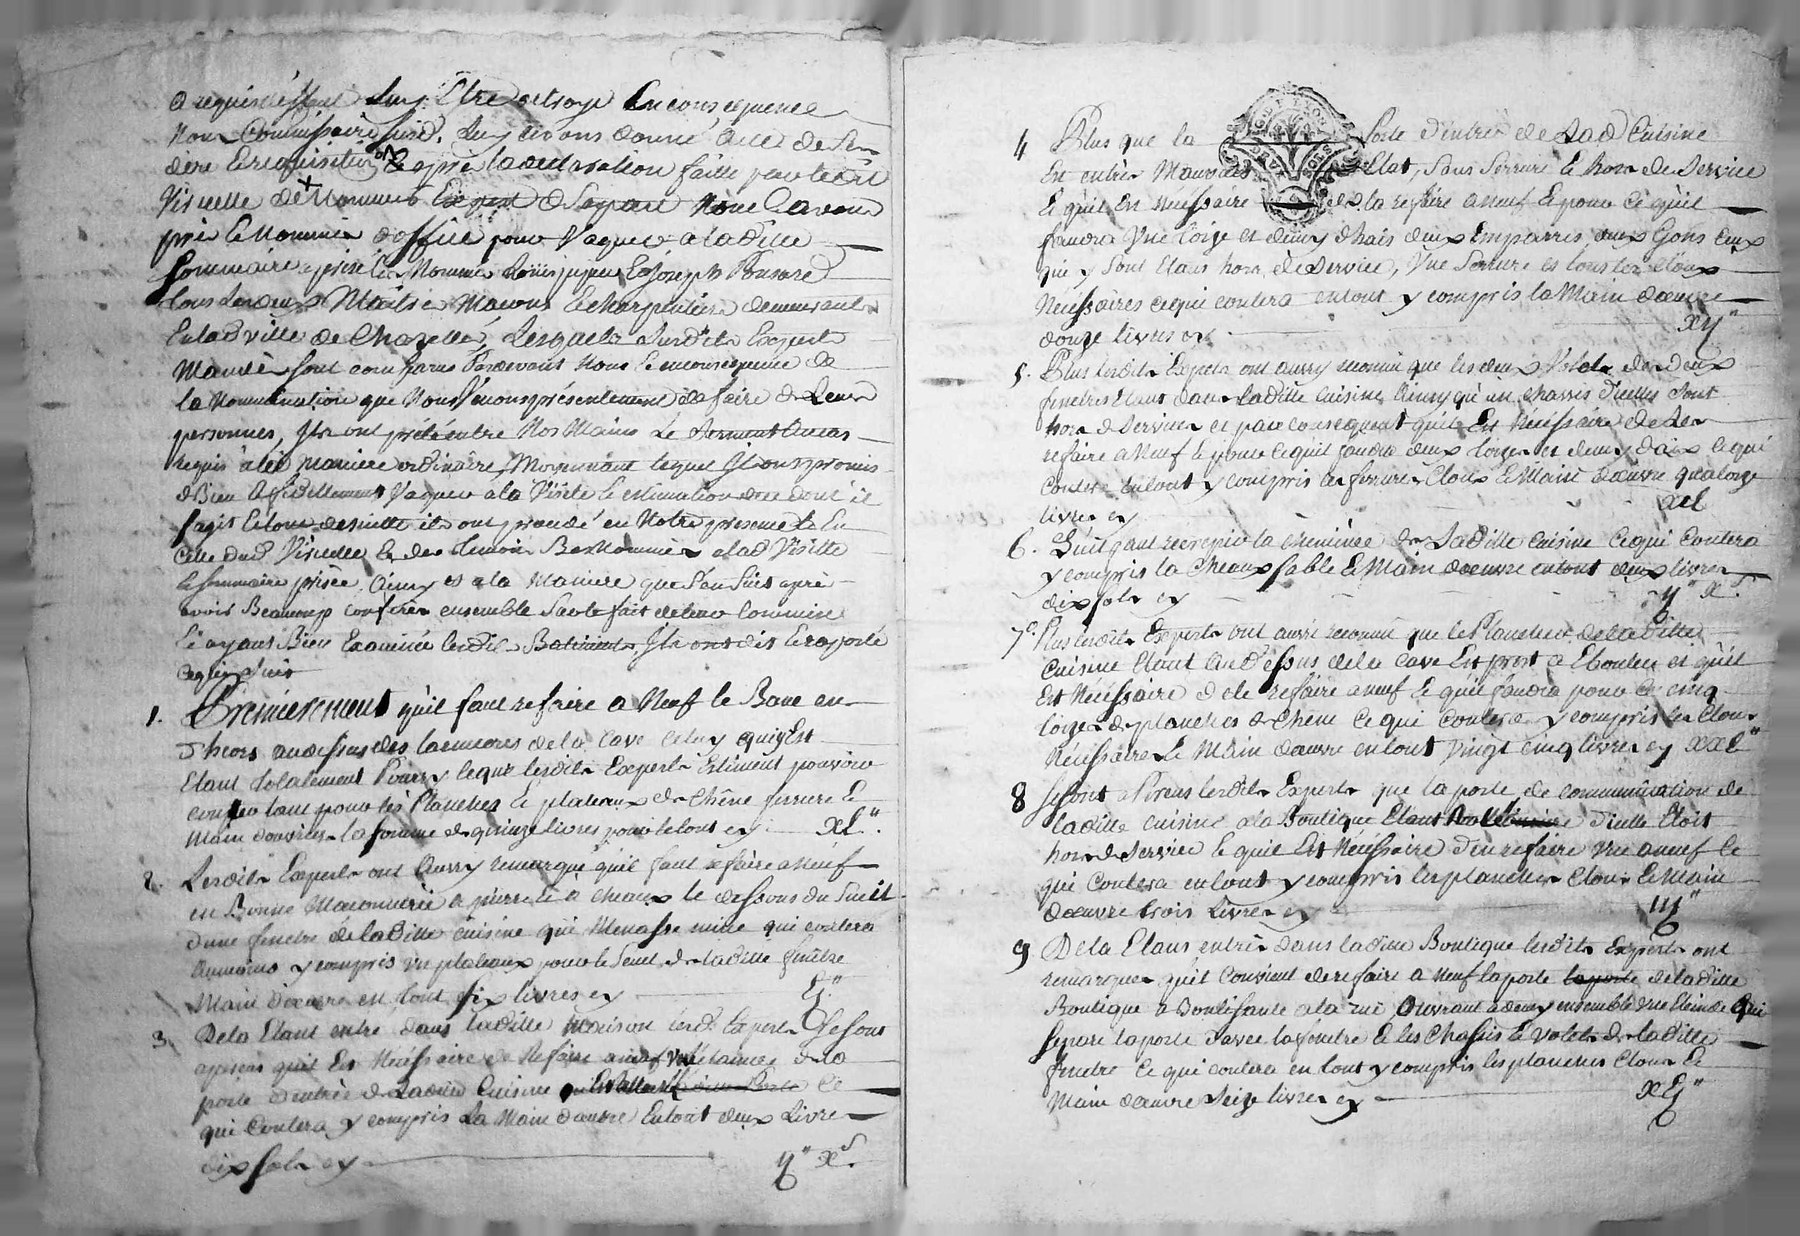 a requis Estre Luy Etre octroyé En consequence
Nous Commissaire susd. Luy avons donné acte de Ses
dire Erequisition & après la declaration faitte par ledit
Visuelle de Nommer Expert de Sa part Nous L'avons
pris & Nommé d'office pour Vaquer a la ditte
sommaire
tous les deux Maitre Macons & charpentiers demeurant
En lad ville de Chazelle, Lesquels susdits Experts
Mandés sont comparus Pardevant Nous & en consequence de
la Nommination que Nous Venons présentement de faire de Leurs
personnes, Ils ont preté entre Nos Mains Le Serment au cas
requis a la maniere ordinaire, Moyennant lequel Ils ont promis
de Bien & fidellement Vaquer a la Visite & estimation dont il
s'agit & tout desuitte ils ont procedé en Notre presence & En
Celle dud Visuelle & des Temoins Bas Nommés a lad Visitte
& sommaire prisée ainsy et a la Maniere que S'en Suit après
avoir Beaucoup conferés ensemble Sur le fait de leur Commission
& ayant Bien Examiné lesdits Batiments Ils ont dit & raporté
ce qui suit
1. Premierement qu'il faut refaire a Neuf le Banc en
d'heors au dessus des la cave Celuy qui y Est
Etant totalement Pourry lequel lesdits Experts Estiment pouvoir
couter tant pour les Planches & plateaux de Chêne ferrure &
Main d'ouvrier la somme de quinze livres pour le tout cy XV"
2. Lesdits Experts ont aussy remarqué qu'il faut refaire a Neuf
en Bonne Maconnerie a pierre & a chaux le dessous du Sueil
d'une fenetre de laditte cuisine qui Menasse ruine qui coutera
aumoins y compris un plateaux pour le Seuil de laditte fenêtre
Main d'œuvre en tout six livres cy vj"
3. De la Etant entré dans laditte Maison lesd. Experts Se sont
aperçus qu'il Est Nécéssaire de Refaire a neuf de la
porte d'entrée de Laditte Cuisine ce
qui Coutera y compris La Main d'œuvre En tout deux Livres
dix sols cy ij" x s.
4 Plus que la Porte d'entrée de Lad Cuisine
Est entrée Mauvais Etat, Sans Serrure & hors de Service
& qu'il Est Nécéssaire de la refaire a neuf & pour Ce qu'il
faudra Une toise et demy d'hais deux Emparres, deux Gons Ceux
qui y Sont Etans hors de Service, Une Serrure et tous les Cloux
Nécéssaires ce qui coutera en tout y compris la Main d'œuvre
douze livres cy xij"
5. Plus lesdits Experts ont aussy reconnu que les deux Volets des deux
fenetres Etant dans laditte cuisine Ainsy qu'un chassis d'icelles Sont
hors de Services et par consequent qu'il Est Nécéssaire de Les
refaire a Neuf & pour ce qu'il faudra deux toises et demy d'aix ce qui
Coutera En tout y compris les ferrures, Cloux & Main d'œuvre quatorze
livres cy xiv
6. Qu'il faut recrepir la cheminée de Laditte cuisine ce qui coutera
y compris la Cheaux sable & Main d'œuvre en tout deux livres
dix sols cy ij" x s.
7°. Plus lesdits Experts ont aussi reconnu que le Plancher de laditte
Cuisine Etant Au Dessus de la Cave Est prest a Ebouler et qu'il
Est Nécéssaire de le refaire a neuf & qu'il faudra pour ce cinq
toises de planches de Chêne Ce qui Coutera y compris les Cloux
Nécéssaires & Main d'œuvre en tout Vingt cinq livres cy XXV"
8 Se sont aPercus lesdits Experts que la porte de communication de
laditte cuisine a la Boutique Etant d'icelle Etoit
hors de Service & qu'il Est Nécéssaire d'en refaire Une a neuf Ce
qui Coutera en tout y compris les planches Cloux & Main
d'œuvre trois Livres cy iij"
9 De la Etans entrés dans laditte Boutique lesdits Experts ont
remarqués qu'il Convient de refaire a Neuf la porte la porte de laditte
Boutique a Boutissante a la rue Ouvrant a demy ensemble Une Qui
Separe la porte d'avec la fenetre & les Chassis & Volets de laditte
fenetre Ce qui coutera en tout y compris les planches Cloux &
Main d'œuvre Seize livres cy xvj"